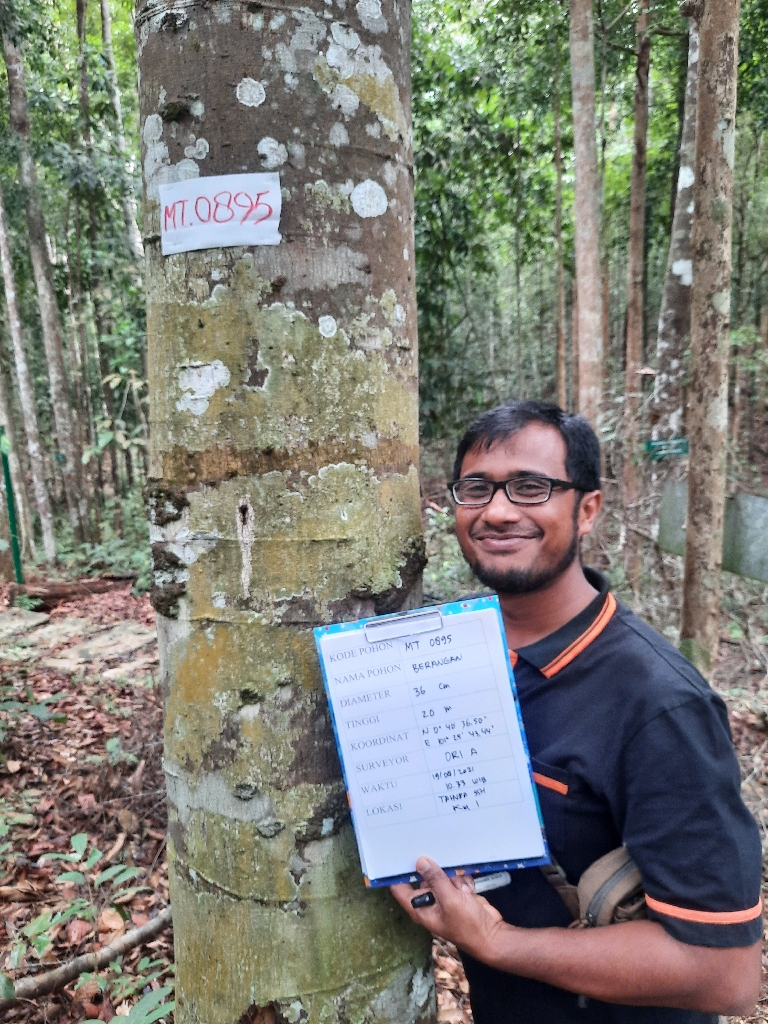 MT.0895
KODE POHON MT 0895
NAMA POHON BERANGAN
DIAMETER 36 cm
TINGGI 20 m
KOORDINAT N 0° 40' 36.50"
E 101° 25' 43,44"
SURVEYOR ORI A
WAKTU 19/08/2021
10.33 WIB
LOKASI TAHURA SSH
KM 1